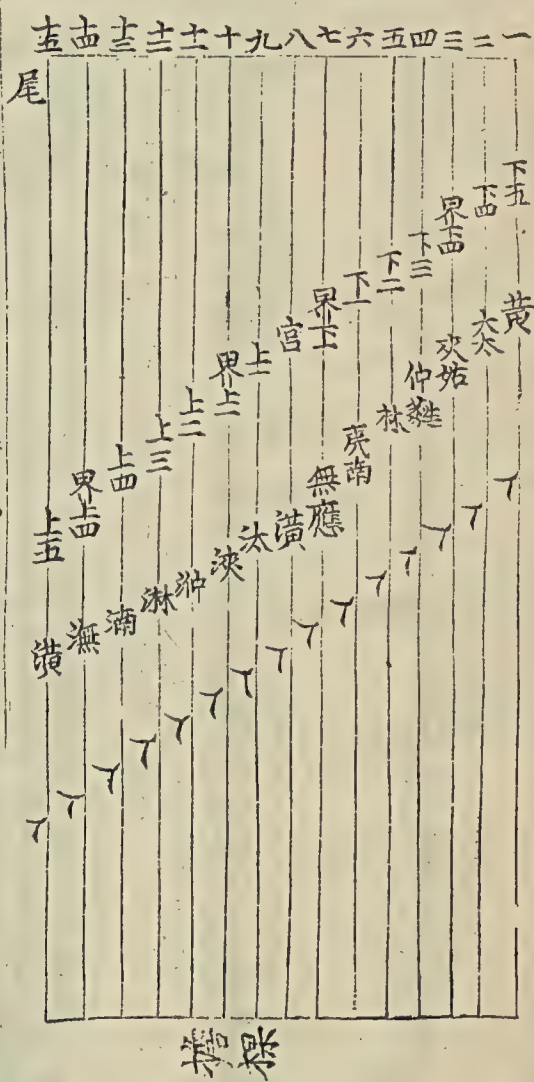 一 二 三 四 五 六 七 八 九 十 十一 十二 十三 十四 十五
尾
下五 下四 界下四 下三 下二 下一 界下一 宮 上一 界上一 上二 上三 上四 界上四 上五
黃 大太 夾姑 仲蕤 林 夷南 無應 潢 汰 浹 㳞 淋 湳 潕 潢